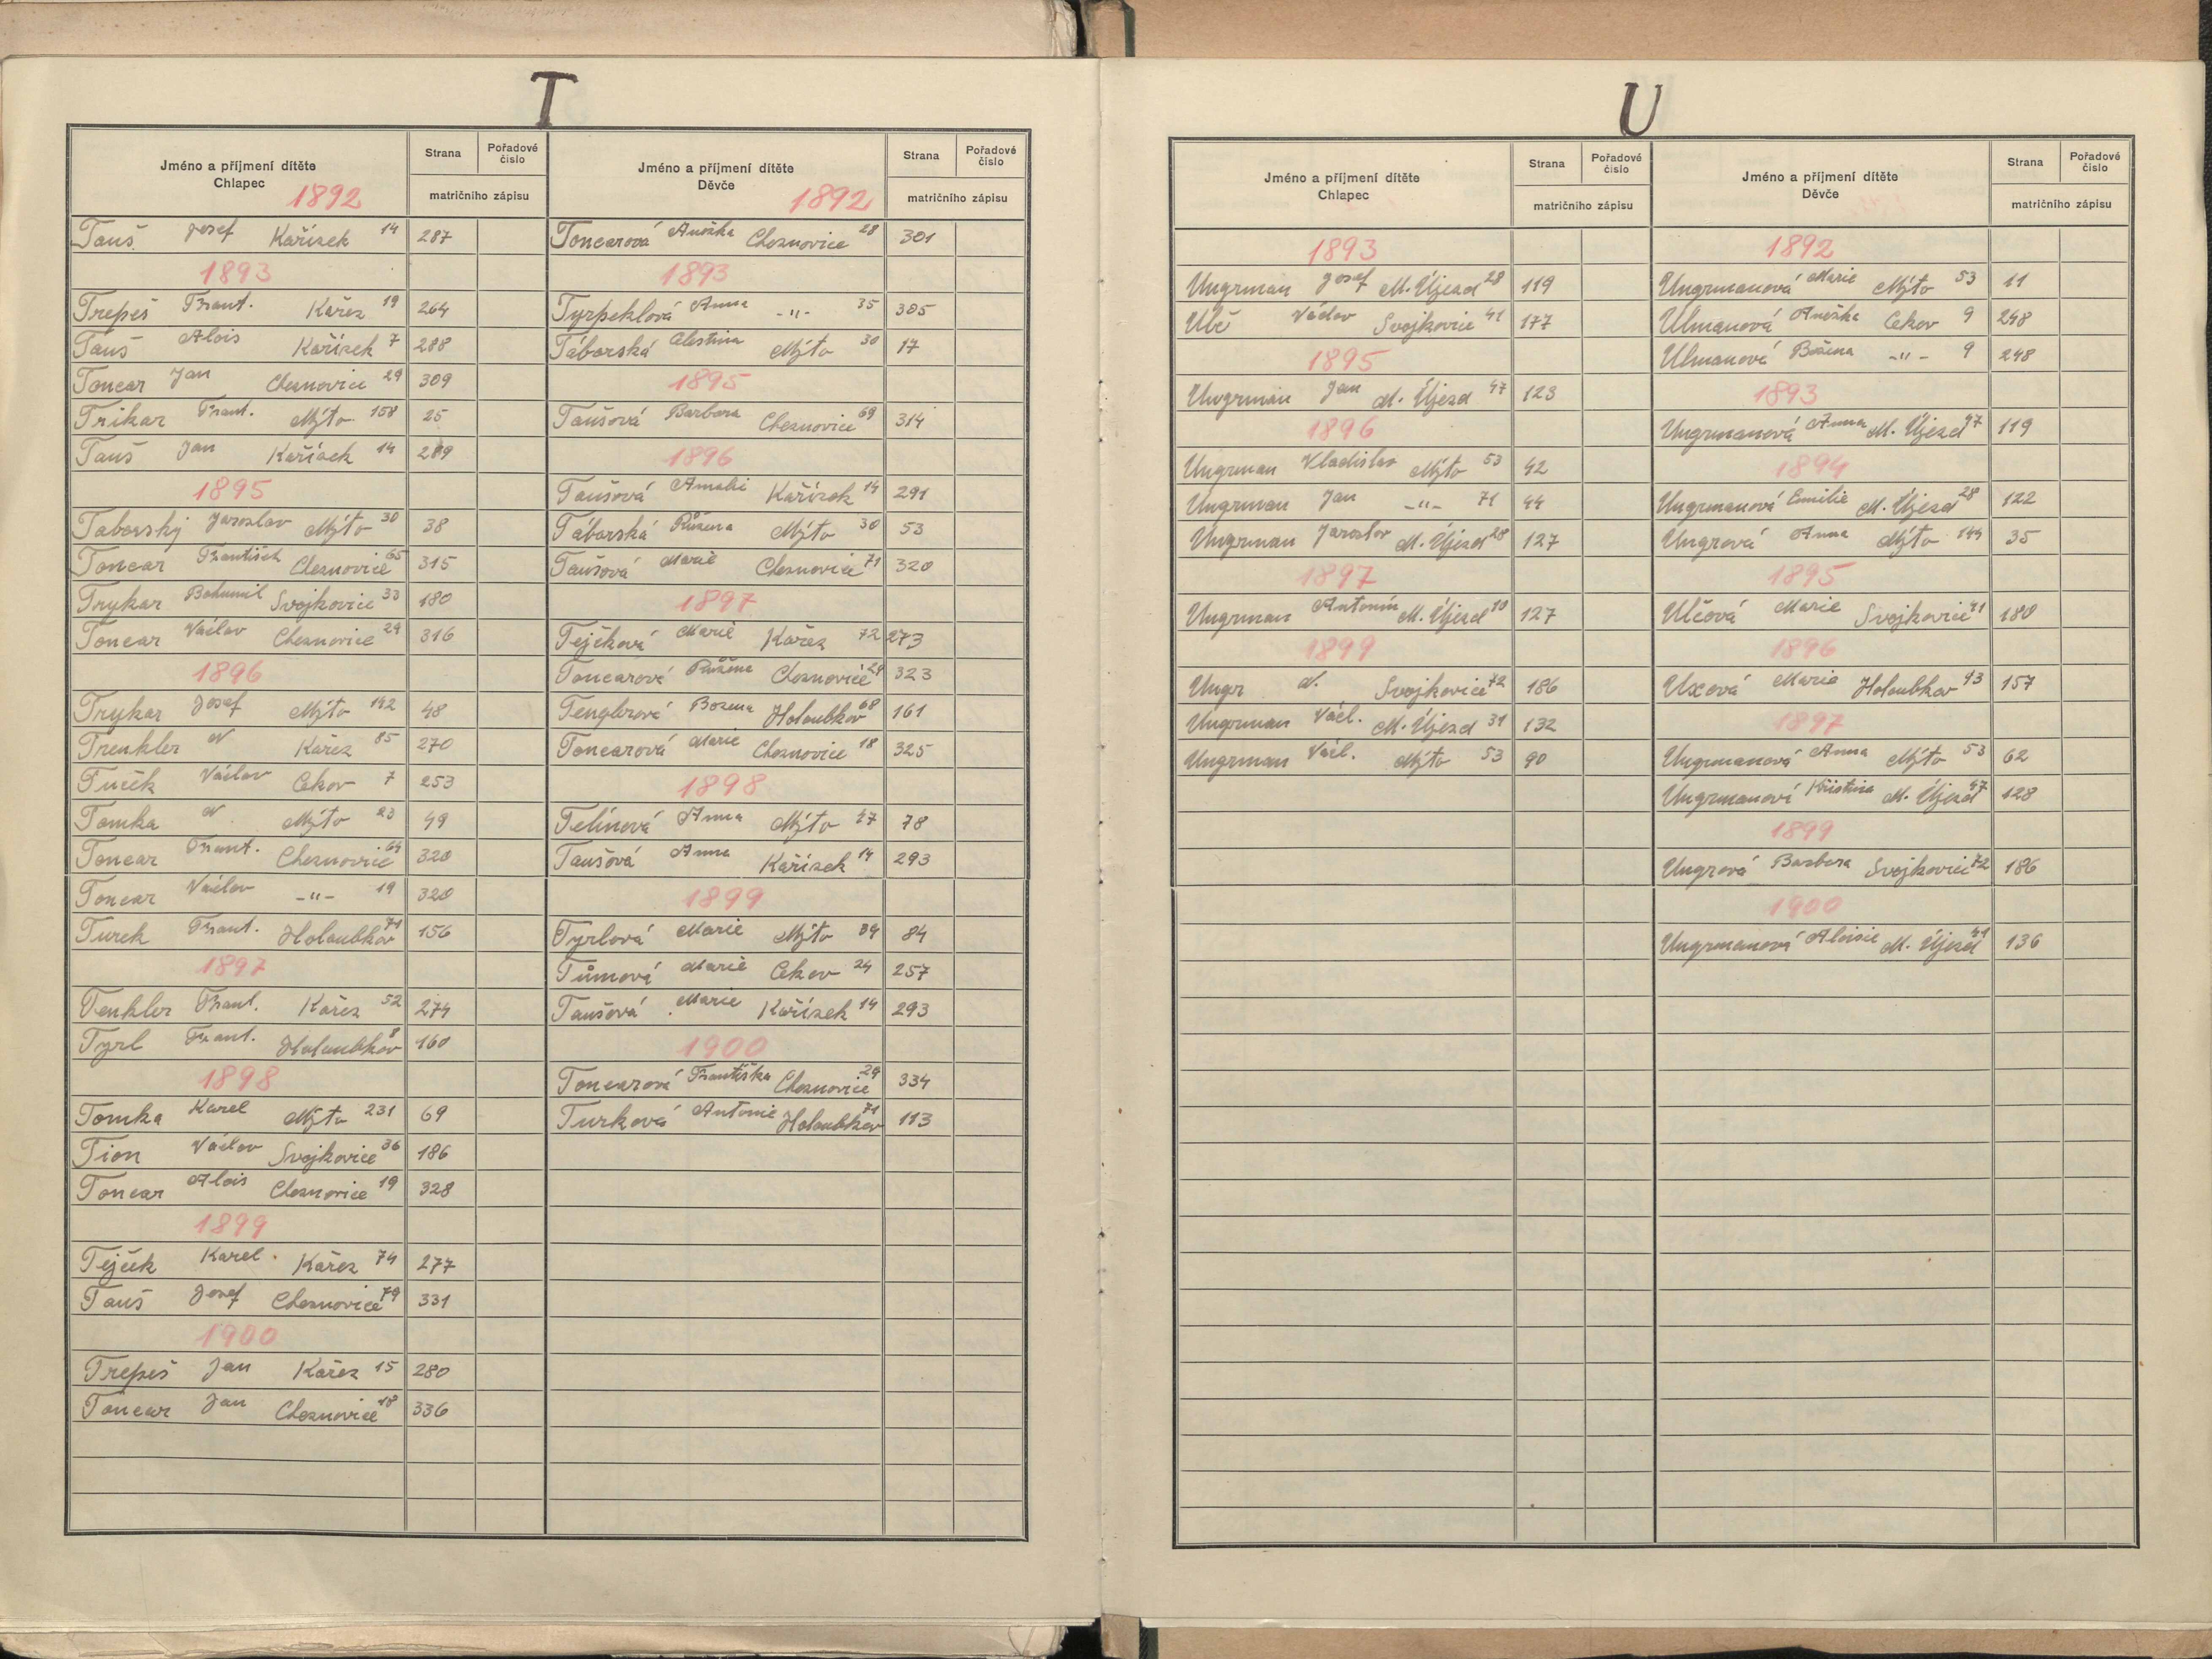 T
Jméno a příjmení dítěte
Chlapec 1892
Strana
Pořadové číslo
matričního zápisu
Tauš Josef Kařízek 14 287
1893
Trepeš Frant. Kařez 19 264
Tauš Alois Kařízek 7 288
Toncar Jan Cheznovice 29 309
Trikar Frant. Mýto 158 25
Tauš Jan Kařízek 14 289
1895
Taborský Jaroslav Mýto 30 38
Toncar František Cheznovice 65 315
Trykar Bohumil Svojkovice 33 180
Toncar Václav Cheznovice 29 316
1896
Trykar Josef Mýto 142 48
Trenkler N Kařez 85 270
Tuček Václav Cekov 7 253
Tomka N. Mýto 23 49
Toncar Frant. Cheznovice 64 320
Toncar Václav -"- 19 320
Turek Frant. Holoubkov 71 156
1897
Tenkler Frant. Kařez 52 274
Tyrl Frant. Holoubkov 8 160
1898
Tomka Karel Mýto 231 69
Tion Václav Svojkovice 36 186
Toncar Alois Cheznovice 19 328
1899
Tejček Karel Kařez 74 277
Tauš Josef Cheznovice 79 331
1900
Trepeš Jan Kařez 15 280
Toncar Jan Cheznovice 18 336
Jméno a příjmení dítěte
Děvče 1892
Strana
Pořadové číslo
matričního zápisu
Toncarová Anežka Cheznovice 28 301
1893
Tyrpeklová Anna -"- 35 305
Táborská Celestina Mýto 30 17
1895
Taušová Barbora Cheznovice 69 314
1896
Taušová Amalie Kařízek 14 291
Táborská Růžena Mýto 30 53
Taušová Marie Cheznovice 71 320
1897
Tejčková Marie Kařez 72 273
Toncarová Růžena Cheznovice 29 323
Tenglerová Božena Holoubkov 68 161
Toncarová Marie Cheznovice 18 325
1898
Telínová Anna Mýto 27 78
Taušová Anna Kařízek 14 293
1899
Tyrlová Marie Mýto 39 84
Tůmová Marie Cekov 24 257
Taušová Marie Kařízek 14 293
1900
Toncarová Františka Cheznovice 29 334
Turková Antonie Holoubkov 71 113
U
Jméno a příjmení dítěte
Chlapec
Strana
Pořadové číslo
matričního zápisu
1893
Ungrman Josef M. Újezd 28 119
Ulč Václav Svojkovice 41 177
1895
Ungrman Jan M. Újezd 47 123
1896
Ungrman Vladislav Mýto 53 42
Ungrman Jan -"- 71 44
Ungrman Jaroslav M. Újezd 28 127
1897
Ungrman Antonín M. Újezd 10 127
1899
Ungr N. Svojkovice 72 186
Ungrman Václ. M. Újezd 31 132
Ungrman Václ. Mýto 53 90
Jméno a příjmení dítěte
Děvče
Strana
Pořadové číslo
matričního zápisu
1892
Ungrmanová Marie Mýto 53 11
Ulmanová Anežka Cekov 9 248
Ulmanová Božena -"- 9 248
1893
Ungrmanová Anna M. Újezd 47 119
1894
Ungrmanová Emilie M. Újezd 28 122
Ungrová Anna Mýto 144 35
1895
Ulčová Marie Svojkovice 41 180
1896
Uxová Marie Holoubkov 43 157
1897
Ungrmanová Anna Mýto 53 62
Ungrmanová Kristina M. Újezd 47 128
1899
Ungrová Barbora Svojkovice 72 186
1900
Ungrmanová Aloisie M. Újezd 41 136